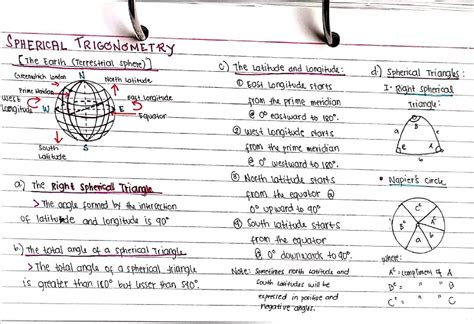 SPHERICAL TRIGONOMETRY
[The Earth (Terrestrial sphere)]
Greenwich London
N
North latitude
Prime Meridian
West
longitude
W
E
East longitude
Equator
South
latitude
S
a) The Right Spherical Triangle
> The angle formed by the intersection
of latitude and longitude is 90°
b) The total angle of a spherical Triangle
> The total angle of a spherical triangle
is greater than 180° but lesser than 540°.
c) The Latitude and Longitude:
① East longitude starts
from the prime meridian
@ 0° eastward to 180°.
② West longitude starts
from the prime meridian
@ 0° westward to 180°.
③ North latitude starts
from the equator @
0° upward to 90°
④ South latitude starts
from the equator
@ 0° downwards to 90°.
Note: Sometimes north latitude and
South latitudes will be
expressed in positive and
negative angles.
d) Spherical Triangles:
I. Right spherical
Triangle:
B
a
c
b
• Napier's Circle
where:
A^c = compliment of A
B^c = " B
C^c = " C